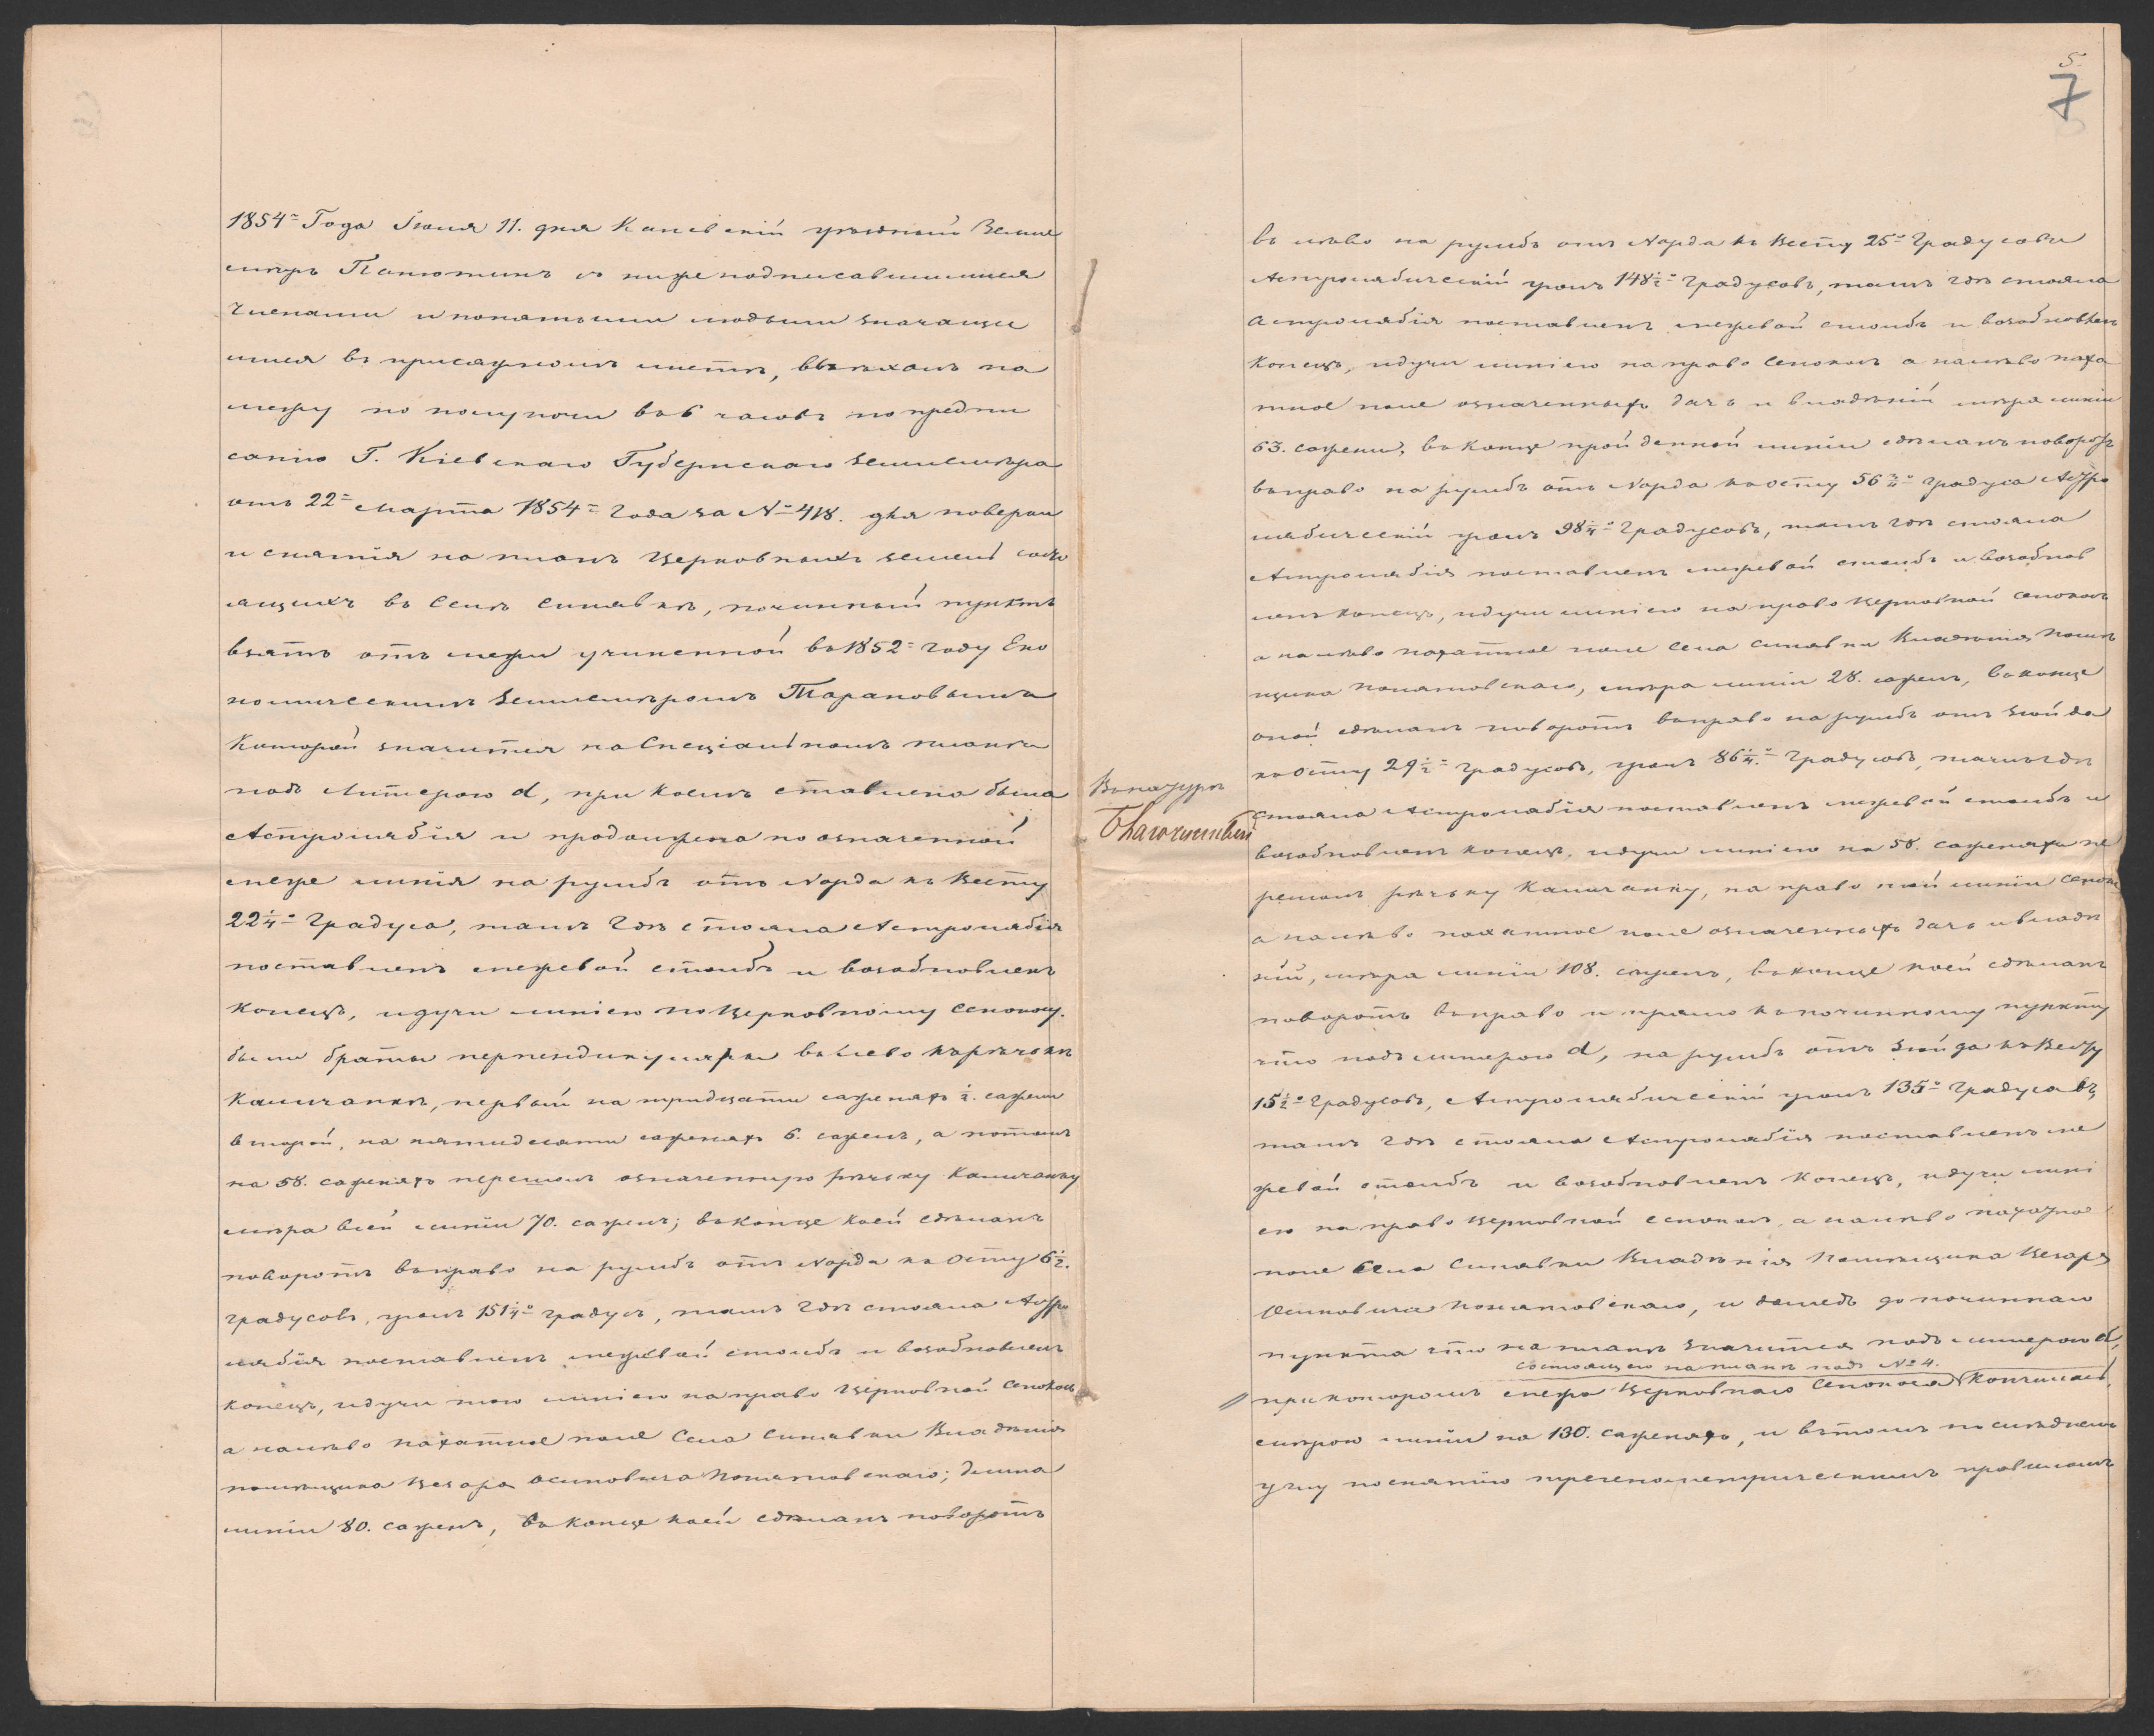 1854= Года Іюля 11. дня Каневскій уѣздный Земле
мѣръ Панютинъ съ нижеподписавшимися
членами и понятыми людьми значащи
мися въ присяжномъ листѣ, выѣхалъ на
межу по полуночи въ 6 часовъ по предпи
санію Г. Кіевскаго Губернскаго Землемѣра
отъ 22= Марта 1854= года за №= 418. для поверки
и снятія на планъ Церковныхъ земель состо
ящихъ въ селѣ Синявкѣ, починный пунктъ
взятъ отъ межи учиненной въ 1852= году Эко
номическимъ Землемѣромъ Тарановымъ
который значится на Спеціальномъ планѣ
подъ Литерою d, при коемъ ставлена была
Астролябія и продолжена по означенной
меже линія на румбъ отъ Норда къ Весту
22¼= Градуса, тамъ гдѣ стояла Астролябія
поставленъ межевой столбъ и возобновленъ
Конецъ, идучи линіею по Церковному сенокосу.
были браты перпендикуляры влѣво къ рѣчькѣ
Камичанкѣ, первый на тридцати саженяхъ ½. сажени
второй, на пятидесяти саженяхъ 6. саженъ, а потомъ
на 58. саженяхъ перешолъ означенную рѣчьку Камичанку
мѣра всей линіи 70. саженъ; въ Конце коей сдѣланъ
поворотъ вправо на румбъ отъ Норда къ Осту 6½.
градусовъ, уголъ 151¼= градус, тамъ гдѣ стояла Астро
лябія поставленъ межевой столбъ и возобновленъ
конецъ, идучи тою линіею на право Церковной Сенокосъ
а налѣво пахатное поле Села Синявки Владѣнія
помѣщика Цезаря Осиповича Понятовскаго; длина
линіи 80. саженъ, въ Конце коей сдѣланъ поворотъ
Благочинный
5.
7
въ лѣво на румбъ отъ Норда къ Весту 25= Градусовъ
Астролябическій уголъ 148½= Градусовъ, тамъ гдѣ стояла
Астролябія поставленъ межевой столбъ и возобновленъ
Конецъ, идучи линіею на право Сенокосъ а налѣво паха
тное поле означенныхъ дачь и владѣній мѣра линіи
63. сажени, въ Конце пройденной линіи сдѣланъ поворотъ
въ право на румбъ отъ Норда къ Осту 56¾= градуса Астро
лябическій уголъ 98¼= Градусовъ, тамъ гдѣ стояла
Астролябія поставленъ межевой столбъ и возобнов
ленъ конецъ, идучи линіею на право Церковной сенокосъ
а налѣво пахатное поле села Синявки Владѣнія помѣ
щика Понятовскаго, мѣра линіи 28. саженъ, въ конце
оной сдѣланъ поворотъ вправо на румбъ отъ Зюйда
къ Осту 29½= градусовъ, уголъ 86¼= Градусовъ, тамъ гдѣ
стояла Астролябія поставленъ межевой столбъ и
возобновленъ конецъ, идучи линіею на 58. саженяхъ пе
решолъ рѣчьку Камичанку, на право той линіи сенокосъ
а налѣво пахатное поле означенныхъ дачь и владѣ
ній, мѣра линіи 108. саженъ, въ конце коей сдѣланъ
поворотъ вправо и прямо къ починному пункту
что подъ литерою d, на румбъ отъ Зюйда къ Весту
15½= Градусовъ, Астролябическій уголъ 135= Градусовъ
тамъ гдѣ стояла Астролябія поставленъ ме
жевой столбъ и возобновленъ Конецъ, идучи лині
ею на право Церковной сенокосъ, а налѣво пахатное
поле Села Синявки Владѣнія Помѣщика Цезаря
Осиповича Понятовскаго, и дошедъ до починнаго
пункта что на планѣ значится подъ литерою d,
состоящего на планѣ подъ № 4.
// при которомъ межа Церковнаго Сенокоса кончилась,
мѣрою линіи на 130. саженяхъ, и въ томъ послѣднемъ
углу по снятію правиламъ